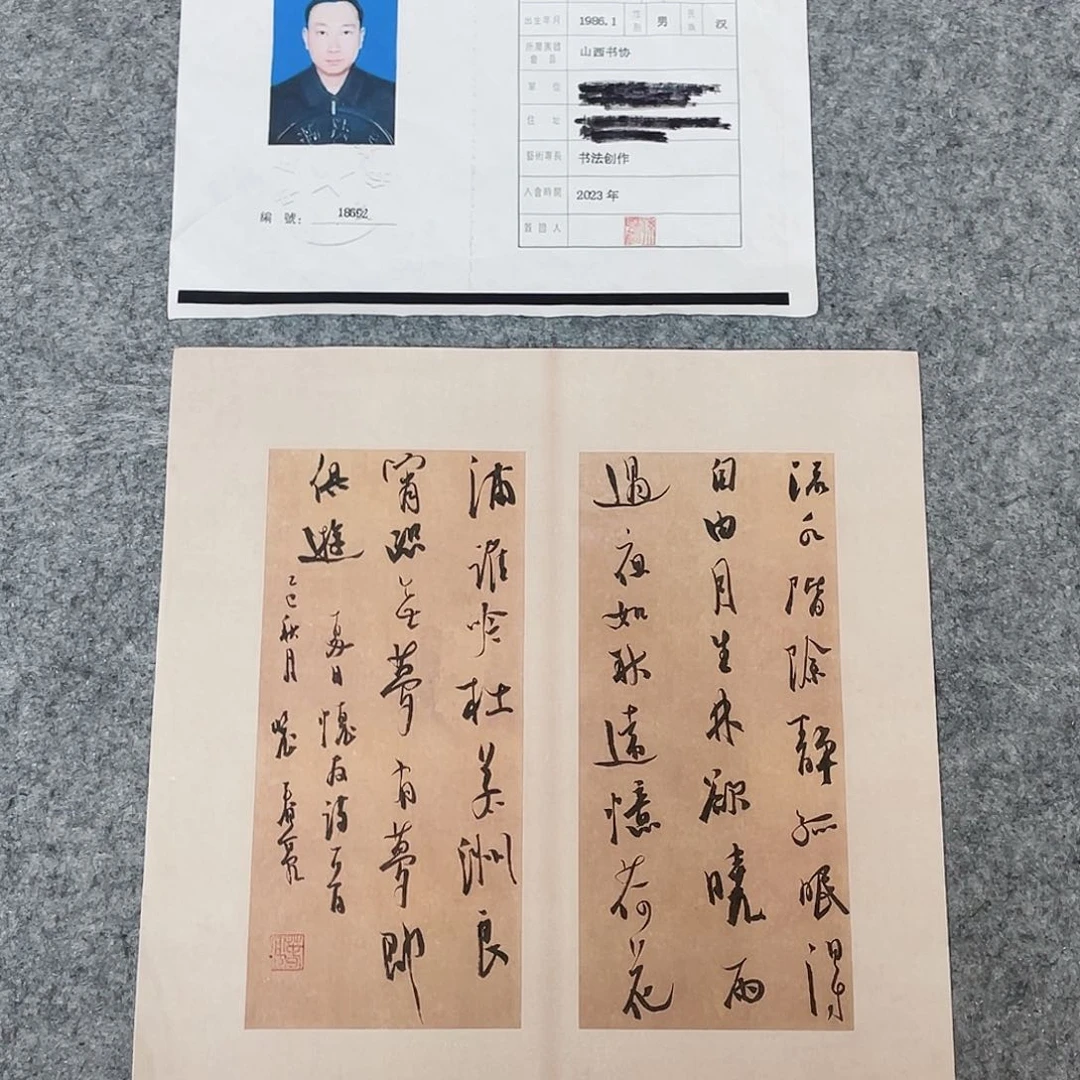 出生年月 1986.1 性别 男 民族 汉
所屬團體會員 山西书协
單位
住址
藝術專長 书法创作
入會時間 2023年
簽證人
編號: 18692
流水階除靜孤眠得
自由月生林欲曉雨
過夜如秋遠憶荷花
浦誰吟杜若洲良
宵恐無夢有夢即
俱遊 夏日懷友詩一首
乙巳秋月